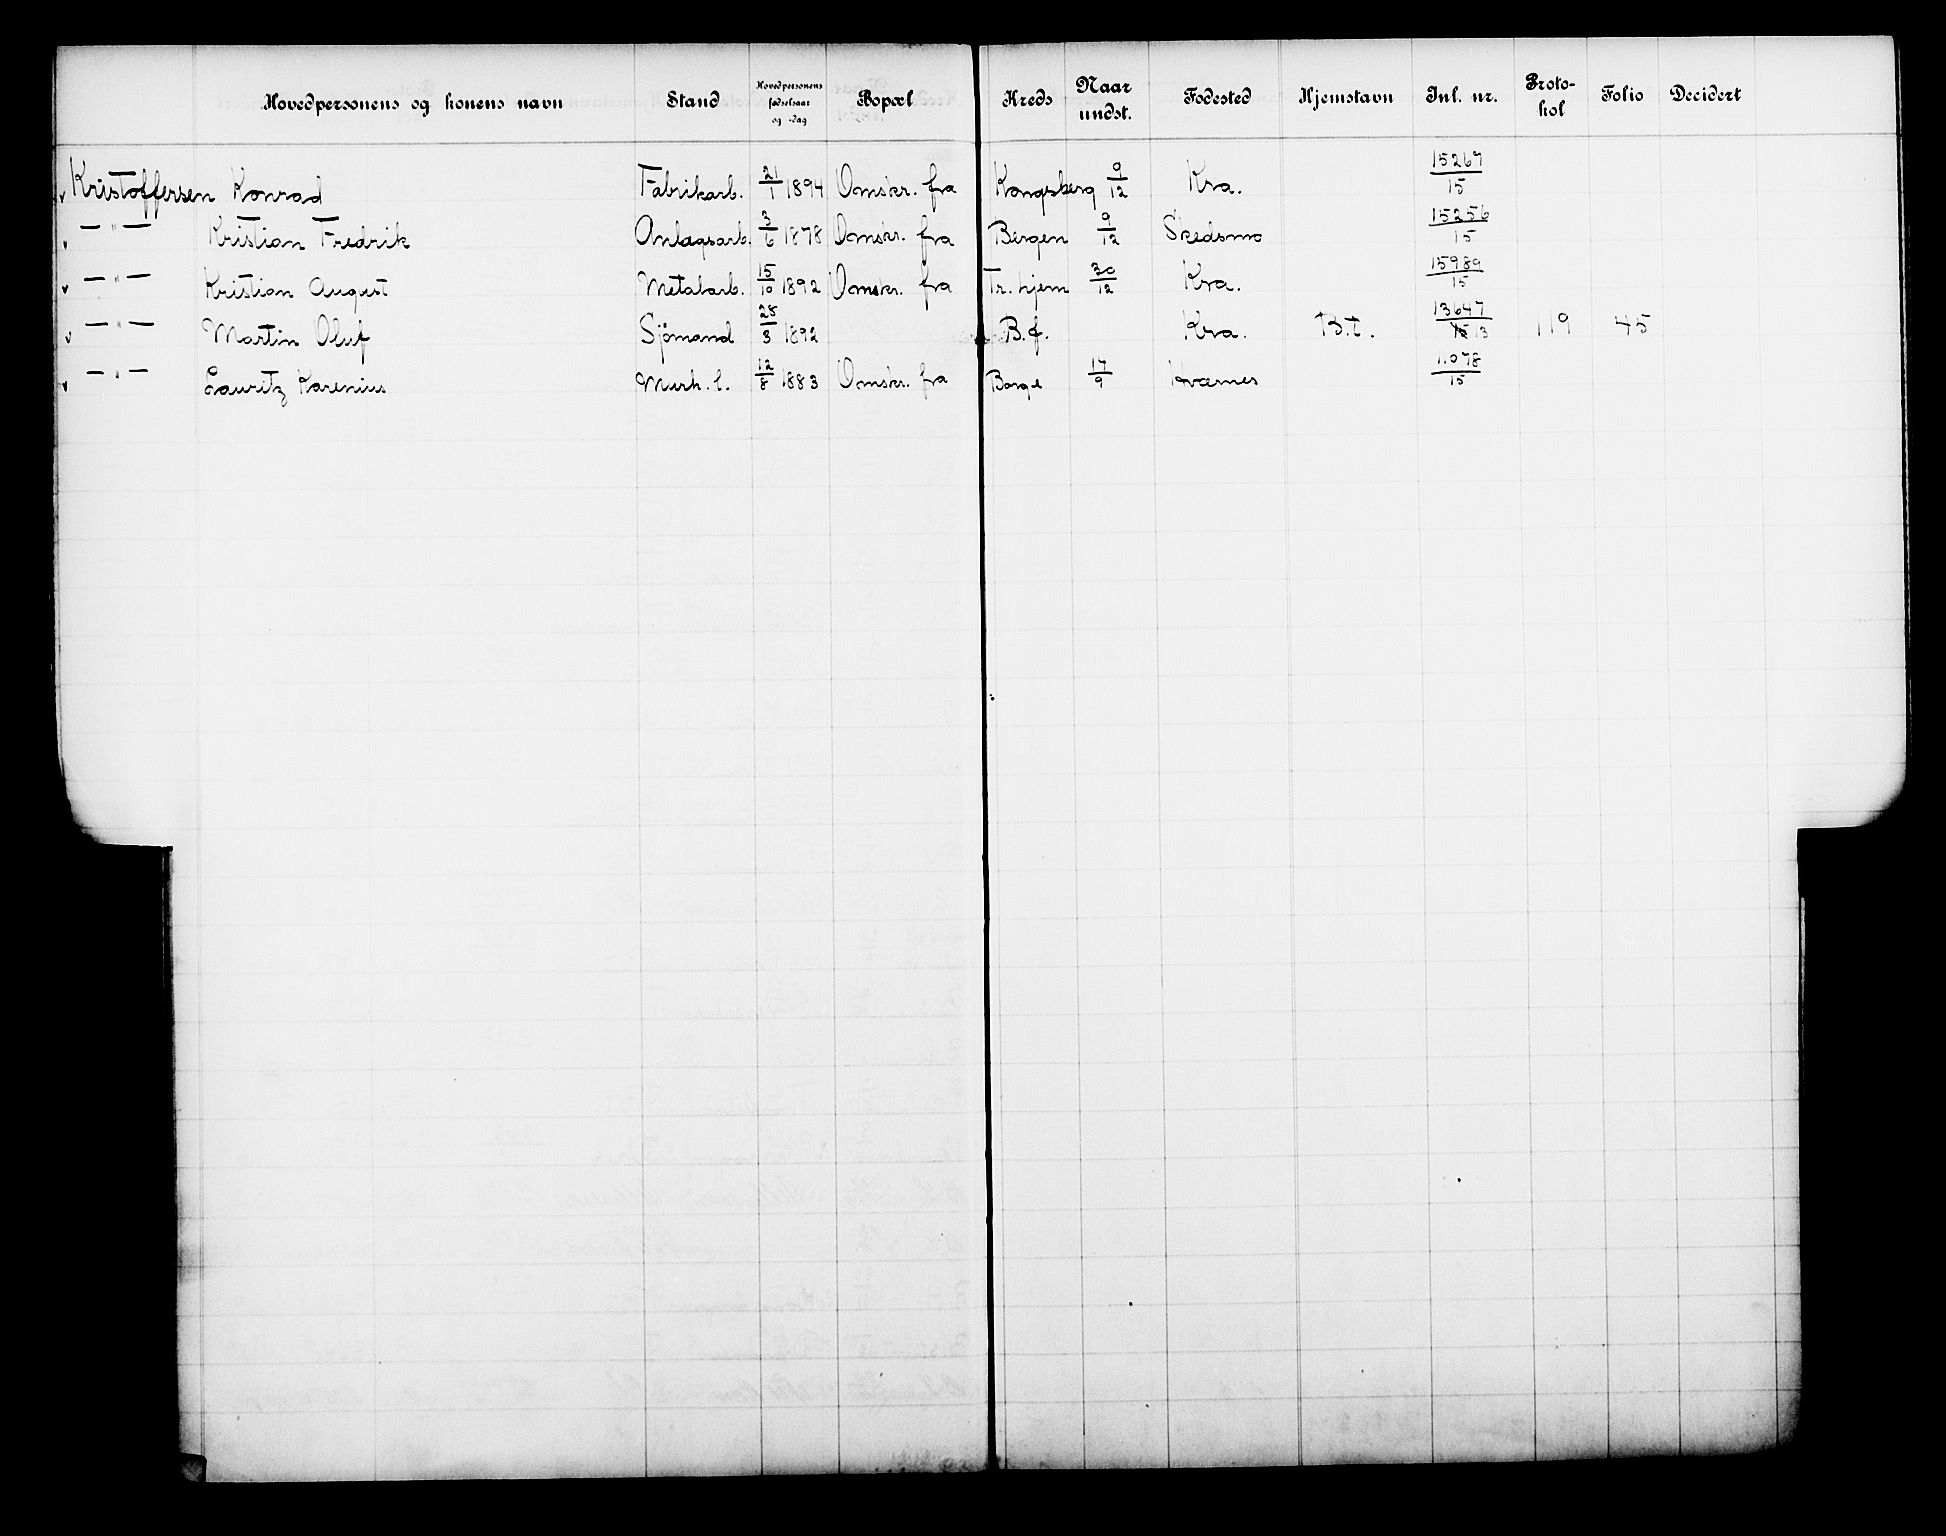 Hovedpersonens og konens navn Stand Hovedpersonens fødselsaar og -dag Bopæl Kreds Naar undst. Fødested Hjemstavn Inl. nr. Proto-kol Folio Decidert
Kristoffersen Konrad Fabrikarb. 21/1 1894 Omskr. fra Kongsberg 9/12 Kra. 15267/15
— " — Kristian Fredrik Anlægsarb. 3/6 1878 Omskr. fra Bergen 9/12 Skedsmo 15256/15
— " — Kristian August Metalarb. 15/10 1892 Omskr. fra Tr. hjem 30/12 Kra. 15989/15
— " — Martin Oluf Sjömand 28/3 1892 B.f. Kra. B.t. 13647/13 119 45
— " — Lauritz Karenius Murh. l. 12/8 1883 Omskr. fra Borge 17/9 Kværnes 11078/15